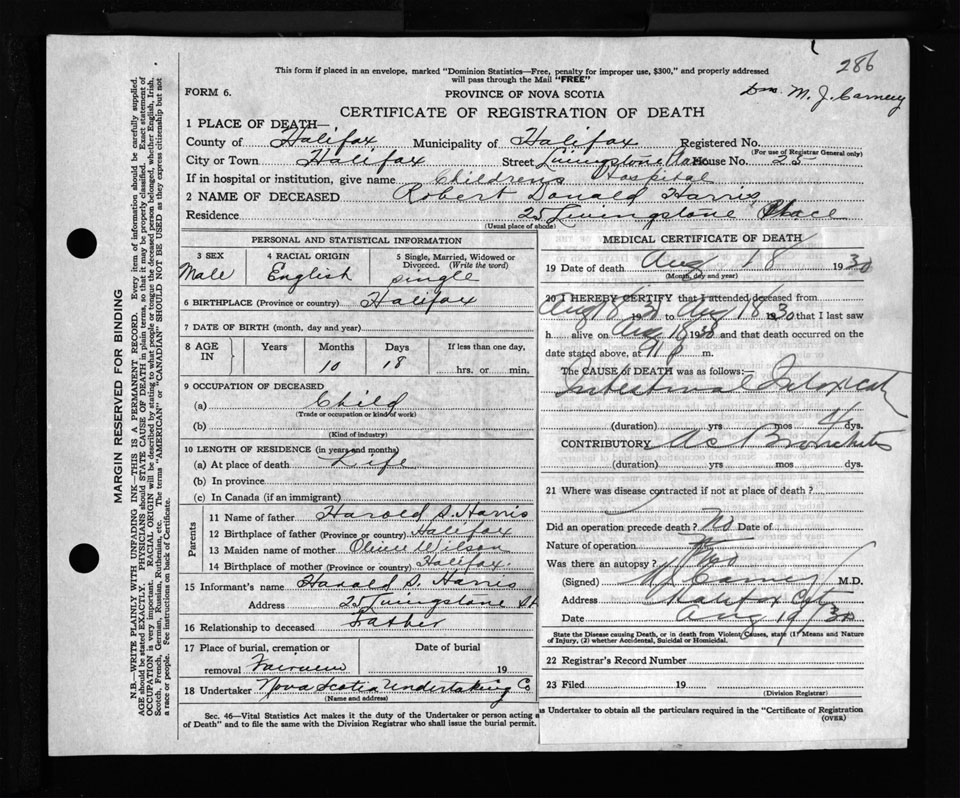 286
This form if placed in an envelope, marked "Dominion Statistics—Free, penalty for improper use, $300," and properly addressed
will pass through the Mail "FREE"
FORM 6.
PROVINCE OF NOVA SCOTIA
M. J. Carney
CERTIFICATE OF REGISTRATION OF DEATH
1 PLACE OF DEATH—
County of Halifax Municipality of Halifax Registered No.
(For use of Registrar General only)
City or Town Halifax Street Livingstone Place House No. 25
If in hospital or institution, give name Childrens Hospital
2 NAME OF DECEASED Robert Donald Harris
Residence 25 Livingstone Place
(Usual place of abode)
PERSONAL AND STATISTICAL INFORMATION
3 SEX Male
4 RACIAL ORIGIN English
5 Single, Married, Widowed or Divorced. (Write the word) single
6 BIRTHPLACE (Province or country) Halifax
7 DATE OF BIRTH (month, day and year)
8 AGE IN Years Months 10 Days 18 If less than one day, hrs. or min.
9 OCCUPATION OF DECEASED
(a) Child
(Trade or occupation or kind of work)
(b)
(Kind of industry)
10 LENGTH OF RESIDENCE (in years and months)
(a) At place of death Life
(b) In province
(c) In Canada (if an immigrant)
Parents
11 Name of father Harold D. Harris
12 Birthplace of father (Province or country) Halifax
13 Maiden name of mother Olive Wilson
14 Birthplace of mother (Province or country) Halifax
15 Informant's name Harold D. Harris
Address 25 Livingstone St
16 Relationship to deceased Father
17 Place of burial, cremation or removal Fairview Date of burial 19
18 Undertaker Nova Scotia Undertaking Co
(Name and address)
MEDICAL CERTIFICATE OF DEATH
19 Date of death Aug 18 1930
(Month, day and year)
20 I HEREBY CERTIFY that I attended deceased from
Aug 18 1930 to Aug 18 1930 that I last saw
h alive on Aug 18 1930 and that death occurred on
date stated above, at m.
The CAUSE OF DEATH was as follows:—
Intestinal Intoxicat
(duration) yrs mos 4 dys.
CONTRIBUTORY Ac Bronchitis
(duration) yrs mos dys.
21 Where was disease contracted if not at place of death?
Did an operation precede death? No Date of
Nature of operation
Was there an autopsy? No
(Signed) Carney M.D.
Address Halifax City
Date Aug 19/30
State the Disease causing Death, or in death from Violent Causes, state (1) Means and Nature
of Injury, (2) whether Accidental, Suicidal or Homicidal.
22 Registrar's Record Number
23 Filed 19
(Division Registrar)
Sec. 46—Vital Statistics Act makes it the duty of the Undertaker or person acting as Undertaker to obtain all the particulars required in the "Certificate of Registration
of Death" and to file the same with the Division Registrar who shall issue the burial permit. (OVER)
MARGIN RESERVED FOR BINDING
N.B.—WRITE PLAINLY WITH UNFADING INK—THIS IS A PERMANENT RECORD. Every item of information should be carefully supplied.
AGE should be stated EXACTLY. PHYSICIANS should STATE CAUSE OF DEATH in plain terms, so that it may be properly classified. Exact statement of
OCCUPATION is very important. RACIAL ORIGIN will be described by stating to what people or tongue the deceased person belonged, whether English, Irish,
Scotch, French, German, Russian, Ruthenian, etc. The terms "AMERICAN" or "CANADIAN" SHOULD NOT BE USED as they express citizenship but not
a race or people. See instructions on back of Certificate.